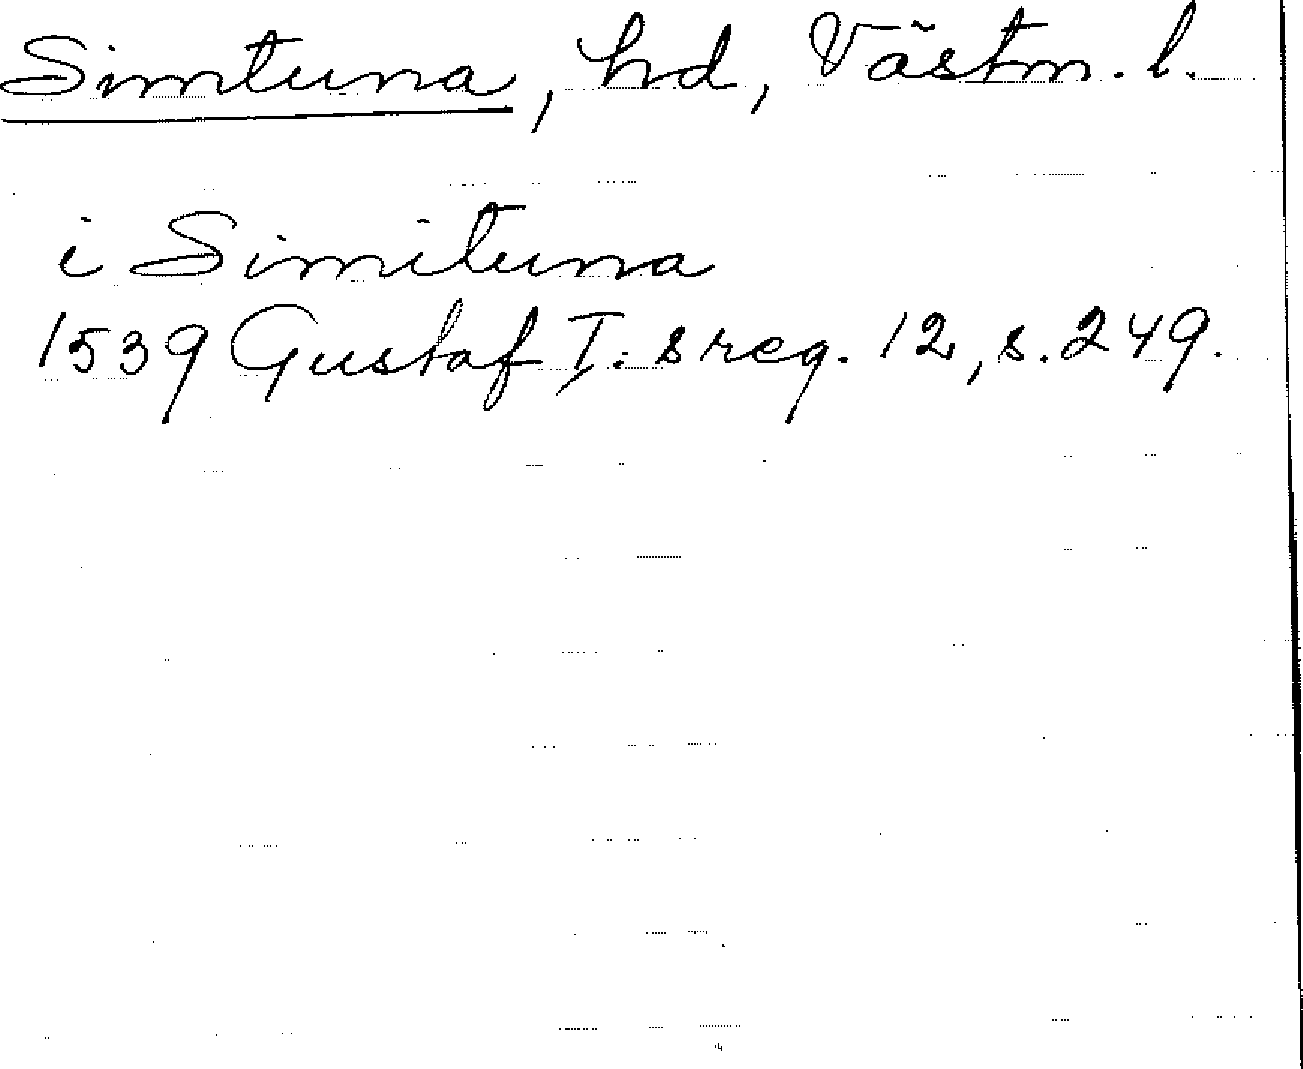 Simtuna, hd, Västm. l.
i Simituna
1539 Gustaf I:s reg. 12, s. 249.